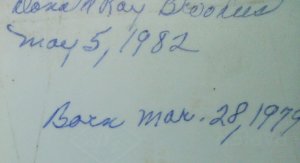 Ray
May 5, 1982
Born Mar. 28, 1979